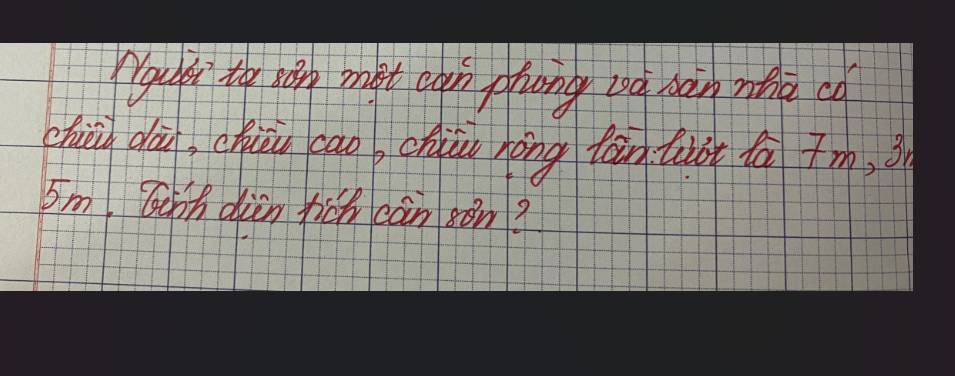 Người ta sơn một căn phòng và sàn nhà có
chiều dài, chiều cao, chiều rộng lần lượt là 7m, 3m
5m. Tính diện tích cần sơn?